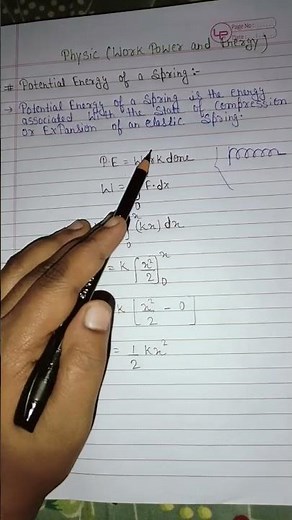 Page No
Physic (Work Power and Energy)
# Potential Energy of a Spring:-
→ Potential Energy of a Spring is the energy
associated with the State of Compression
or Expansion of an elastic Spring.
P E = Work done
W = ∫ F·dx
0
x
(kx) dx
0
= k [x²/2]₀ˣ
k [x²/2 - 0]
= 1/2 kx²